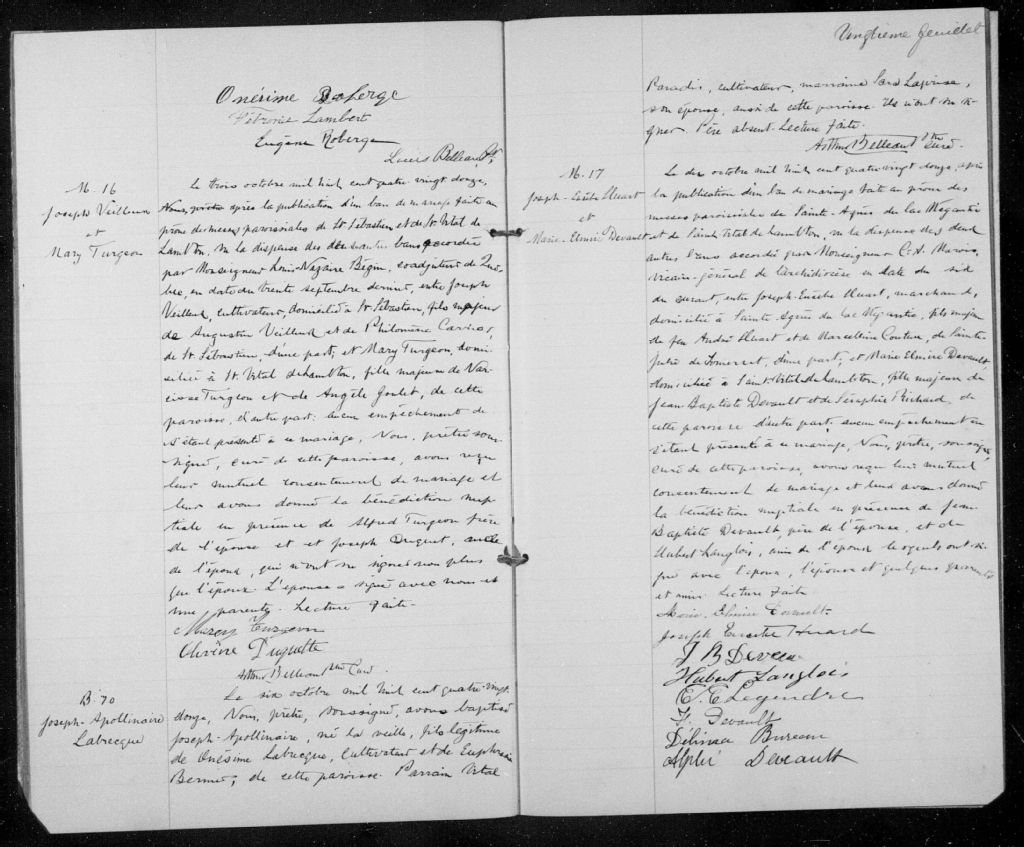 Onésime Roberge
Pétronie Lambert
Eugène Roberge
Louis Belleau, Ptr,
M. 16
Joseph Veilleux
et
Mary Turgeon
Le trois octobre mil huit cent quatre vingt donze,
Nous, prêtre après la publication d'un ban de mariage faite au
prône des messes paroissiales de St Sébastien et de St Vital de
Lambton, vu la dispense des deux autres bans accordée
par Monseigneur Louis-Nazaire Bégin, coadjuteur de Qué-
bec, en date du trente septembre dernier, entre Joseph
Veilleux, cultivateur, domicilié à St Sébastien, fils majeur
de Augustin Veilleux et de Philomène
de St Sébastien, d'une part; et Mary Turgeon, domi-
ciliée à St Vital de Lambton, fille majeure de Nar-
cisse Turgeon et de Angèle Goulet, de cette
paroisse, d'autre part: aucun empêchement ne
s'étant présenté à ce mariage, Nous, prêtre sous-
signé, curé de cette paroisse, avons reçu
leur mutuel consentement de mariage et
leur avons donné la bénédiction nup-
tiale en présence de Alfred Turgeon frère
de l'épouse et et Joseph Duquet, oncle
de l'époux, qui n'ont su signer non plus
que l'époux. L'épouse a signé avec nous et
une parente. Lecture faite.
Marey Turgeon
Olivine Duquette
Arthur Belleau Ptre Curé.
B. 70
Joseph-Apollinaire
Labrecque
Le six octobre mil huit cent quatre vingt
donze, Nous, prêtre, soussigné, avons baptisé
Joseph-Apollinaire, né la veille, fils légitime
de Onésime Labrecque, cultivateur et de Euphrasie
Bernier, de cette paroisse. Parrain Vital
Vingtième feuillet
Paradis, cultivateur, marraine Sara
son épouse, aussi de cette paroisse. Ils n'ont su si-
gner. Père absent. Lecture faite.
Arthur Belleau Ptre Curé.
M. 17
Joseph-Eusèbe Huart
et
Marie-Elmire Devault
Le dix octobre mil huit cent quatre vingt donze, après
la publication d'un ban de mariage fait au prône des
messes paroissiales de Sainte-Agnès du lac Mégantic
et de Saint Vital de Lambton, vu la dispense des deux
autres bans accordé par Monseigneur C. A. Marois,
vicaire-général de l'archidiocèse en date du six
du courant, entre Joseph-Eusèbe Huart, marchand,
domicilié à Sainte Agnès du lac Mégantic, fils majeur
de feu André Huart et de Marcelline Couture, de Sainte
Julie de Somerset, d'une part; et Marie Elmire Devault,
domiciliée à Saint-Vital de Lambton, fille majeure de
Jean Baptiste Devault et de Séraphie Richard, de
cette paroisse d'autre part, aucun empêchement ne
s'étant présenté à ce mariage, Nous, prêtre, soussigné,
curé de cette paroisse, avons reçu leur mutuel
consentement de mariage et leur avons donné
la bénédiction nuptiale en présence de Jean
Baptiste Devault, père de l'épouse, et de
Hubert Langlois, ami de l'époux lesquels ont si-
gné avec l'époux, l'épouse et quelques parents
et amis. Lecture faite
Marie. Elmire Devault
Joseph Eusèbe Huard
J B Deveau
Hubert Langlois
E. E Legendre
F. Devault
Délinaa Bureau
Alphé Devault